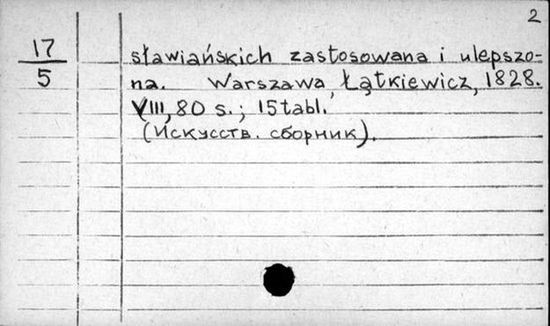 2
17
5
sławiańskich zastosowana i ulepszo-
na. Warszawa, Łątkiewicz, 1828.
VIII, 80 s.; 15 tabl.
(Искусств. сборник).